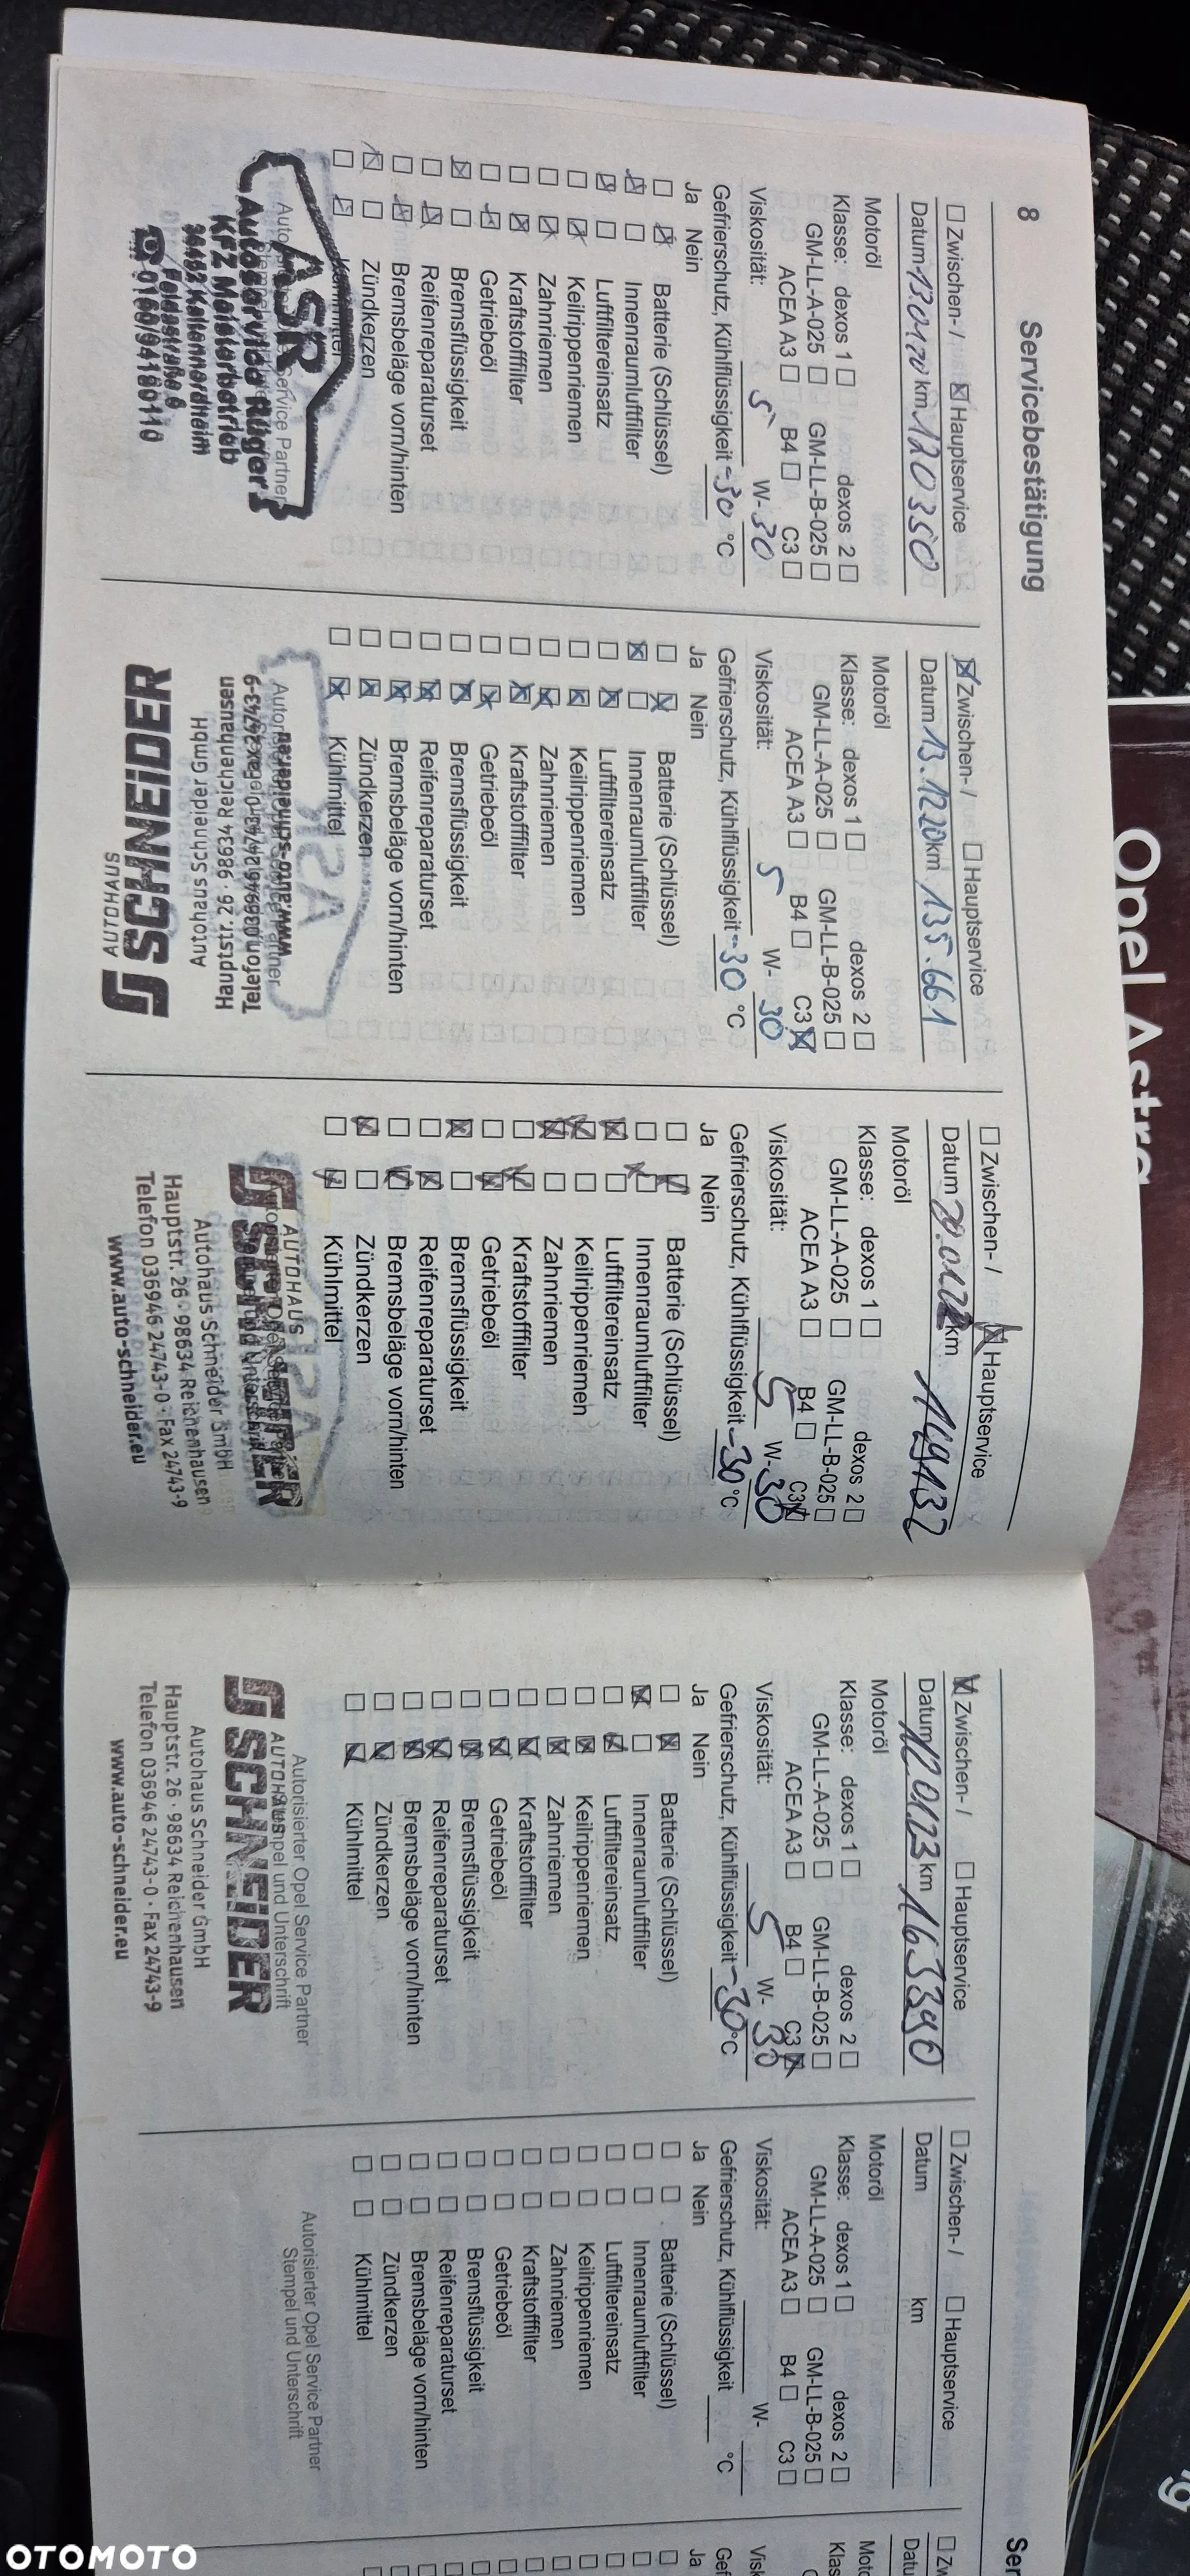 8 Servicebestätigung
☐ Zwischen- / ☒ Hauptservice
Datum 13.01.20 km 120350
Motoröl
Klasse: dexos 1 ☐ dexos 2 ☐
GM-LL-A-025 ☐ GM-LL-B-025 ☐
ACEA A3 ☐ B4 ☐ C3 ☐
Viskosität: 5 W-30
Gefrierschutz, Kühlflüssigkeit -30 °C
Ja Nein
☐ ☒ Batterie (Schlüssel)
☒ ☐ Innenraumluftfilter
☒ ☐ Luftfiltereinsatz
☐ ☒ Keilrippenriemen
☐ ☒ Zahnriemen
☐ ☒ Kraftstofffilter
☐ ☒ Getriebeöl
☒ ☐ Bremsflüssigkeit
☐ ☒ Reifenreparaturset
☐ ☒ Bremsbeläge vorn/hinten
☒ ☐ Zündkerzen
☐ ☒ Kühlmittel
ASR
Autoservice Rüger
KFZ Meisterbetrieb
36452 Kaltennordheim
Feldastraße 8
☎ 0160/94180110
☒ Zwischen- / ☐ Hauptservice
Datum 13.12.20 km 135.661
Motoröl
Klasse: dexos 1 ☐ dexos 2 ☐
GM-LL-A-025 ☐ GM-LL-B-025 ☐
ACEA A3 ☐ B4 ☐ C3 ☒
Viskosität: 5 W-30
Gefrierschutz, Kühlflüssigkeit -30 °C
Ja Nein
☐ ☒ Batterie (Schlüssel)
☒ ☐ Innenraumluftfilter
☐ ☒ Luftfiltereinsatz
☐ ☒ Keilrippenriemen
☐ ☒ Zahnriemen
☐ ☒ Kraftstofffilter
☐ ☒ Getriebeöl
☐ ☒ Bremsflüssigkeit
☐ ☒ Reifenreparaturset
☐ ☒ Bremsbeläge vorn/hinten
☐ ☒ Zündkerzen
☐ ☒ Kühlmittel
AUTOHAUS
SCHNEIDER
Autohaus Schneider GmbH
Hauptstr. 26 · 98634 Reichenhausen
Telefon 036946 24743-0 · Fax 24743-9
www.auto-schneider.eu
☐ Zwischen- / ☒ Hauptservice
Datum 20.01.22 km 149132
Motoröl
Klasse: dexos 1 ☐ dexos 2 ☐
GM-LL-A-025 ☐ GM-LL-B-025 ☐
ACEA A3 ☐ B4 ☐ C3 ☒
Viskosität: 5 W-30
Gefrierschutz, Kühlflüssigkeit -30 °C
Ja Nein
☐ ☒ Batterie (Schlüssel)
☐ ☒ Innenraumluftfilter
☒ ☐ Luftfiltereinsatz
☒ ☐ Keilrippenriemen
☒ ☐ Zahnriemen
☐ ☒ Kraftstofffilter
☐ ☒ Getriebeöl
☒ ☐ Bremsflüssigkeit
☐ ☒ Reifenreparaturset
☐ ☒ Bremsbeläge vorn/hinten
☒ ☐ Zündkerzen
☐ ☒ Kühlmittel
AUTOHAUS
SCHNEIDER
Autohaus Schneider GmbH
Hauptstr. 26 · 98634 Reichenhausen
Telefon 036946 24743-0 · Fax 24743-9
www.auto-schneider.eu
☒ Zwischen- / ☐ Hauptservice
Datum 12.01.23 km 163390
Motoröl
Klasse: dexos 1 ☐ dexos 2 ☐
GM-LL-A-025 ☐ GM-LL-B-025 ☐
ACEA A3 ☐ B4 ☐ C3 ☒
Viskosität: 5 W-30
Gefrierschutz, Kühlflüssigkeit -30 °C
Ja Nein
☐ ☒ Batterie (Schlüssel)
☒ ☐ Innenraumluftfilter
☐ ☒ Luftfiltereinsatz
☐ ☒ Keilrippenriemen
☐ ☒ Zahnriemen
☐ ☒ Kraftstofffilter
☐ ☒ Getriebeöl
☐ ☒ Bremsflüssigkeit
☐ ☒ Reifenreparaturset
☐ ☒ Bremsbeläge vorn/hinten
☐ ☒ Zündkerzen
☐ ☒ Kühlmittel
Autorisierter Opel Service Partner
Stempel und Unterschrift
AUTOHAUS
SCHNEIDER
Autohaus Schneider GmbH
Hauptstr. 26 · 98634 Reichenhausen
Telefon 036946 24743-0 · Fax 24743-9
www.auto-schneider.eu
☐ Zwischen- / ☐ Hauptservice
Datum km
Motoröl
Klasse: dexos 1 ☐ dexos 2 ☐
GM-LL-A-025 ☐ GM-LL-B-025 ☐
ACEA A3 ☐ B4 ☐ C3 ☐
Viskosität: W-
Gefrierschutz, Kühlflüssigkeit °C
Ja Nein
☐ ☐ Batterie (Schlüssel)
☐ ☐ Innenraumluftfilter
☐ ☐ Luftfiltereinsatz
☐ ☐ Keilrippenriemen
☐ ☐ Zahnriemen
☐ ☐ Kraftstofffilter
☐ ☐ Getriebeöl
☐ ☐ Bremsflüssigkeit
☐ ☐ Reifenreparaturset
☐ ☐ Bremsbeläge vorn/hinten
☐ ☐ Zündkerzen
☐ ☐ Kühlmittel
Autorisierter Opel Service Partner
Stempel und Unterschrift
Ser
☐ Zw
Datu
Moto
Klas
Visk
Gef
Ja
Opel Astra
OTOMOTO